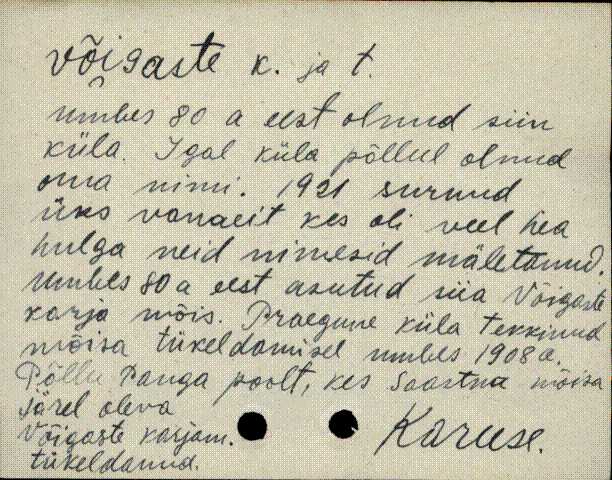 Võigaste k. ja t.
Umbes 80 a eest olnud siin
küla. Igal küla põllul olnud
oma nimi. 1921 surnud
üks vanaeit kes oli veel hea
hulga neid nimesid mäletanud.
Umbes 80 a eest asutud siia Võigaste
karja mõis. Praegune küla tekkinud
mõisa tükeldamisel umbes 1908 a.
Põllu Panga poolt, kes Saastna mõisa
järel oleva
Võigaste karjam.
tükeldanud.
Karuse.